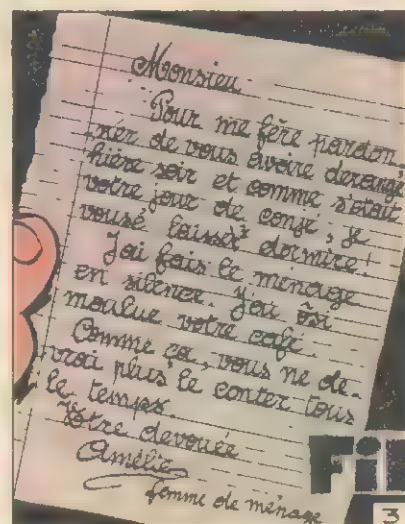 Monsieu
Pour me fère pardon,
ner de vous avoire dérangé
hière soir et comme s'était
votre jour de congé, je
vousé laissèr dormire!
J'ai fais le ménage
en silence. J'ai ôsi
moulue votre café.
Comme ça, vous ne de-
vrai plus le conter tous
le temps.
Votre dévouée
Amélie
femme de ménage
Fin
3